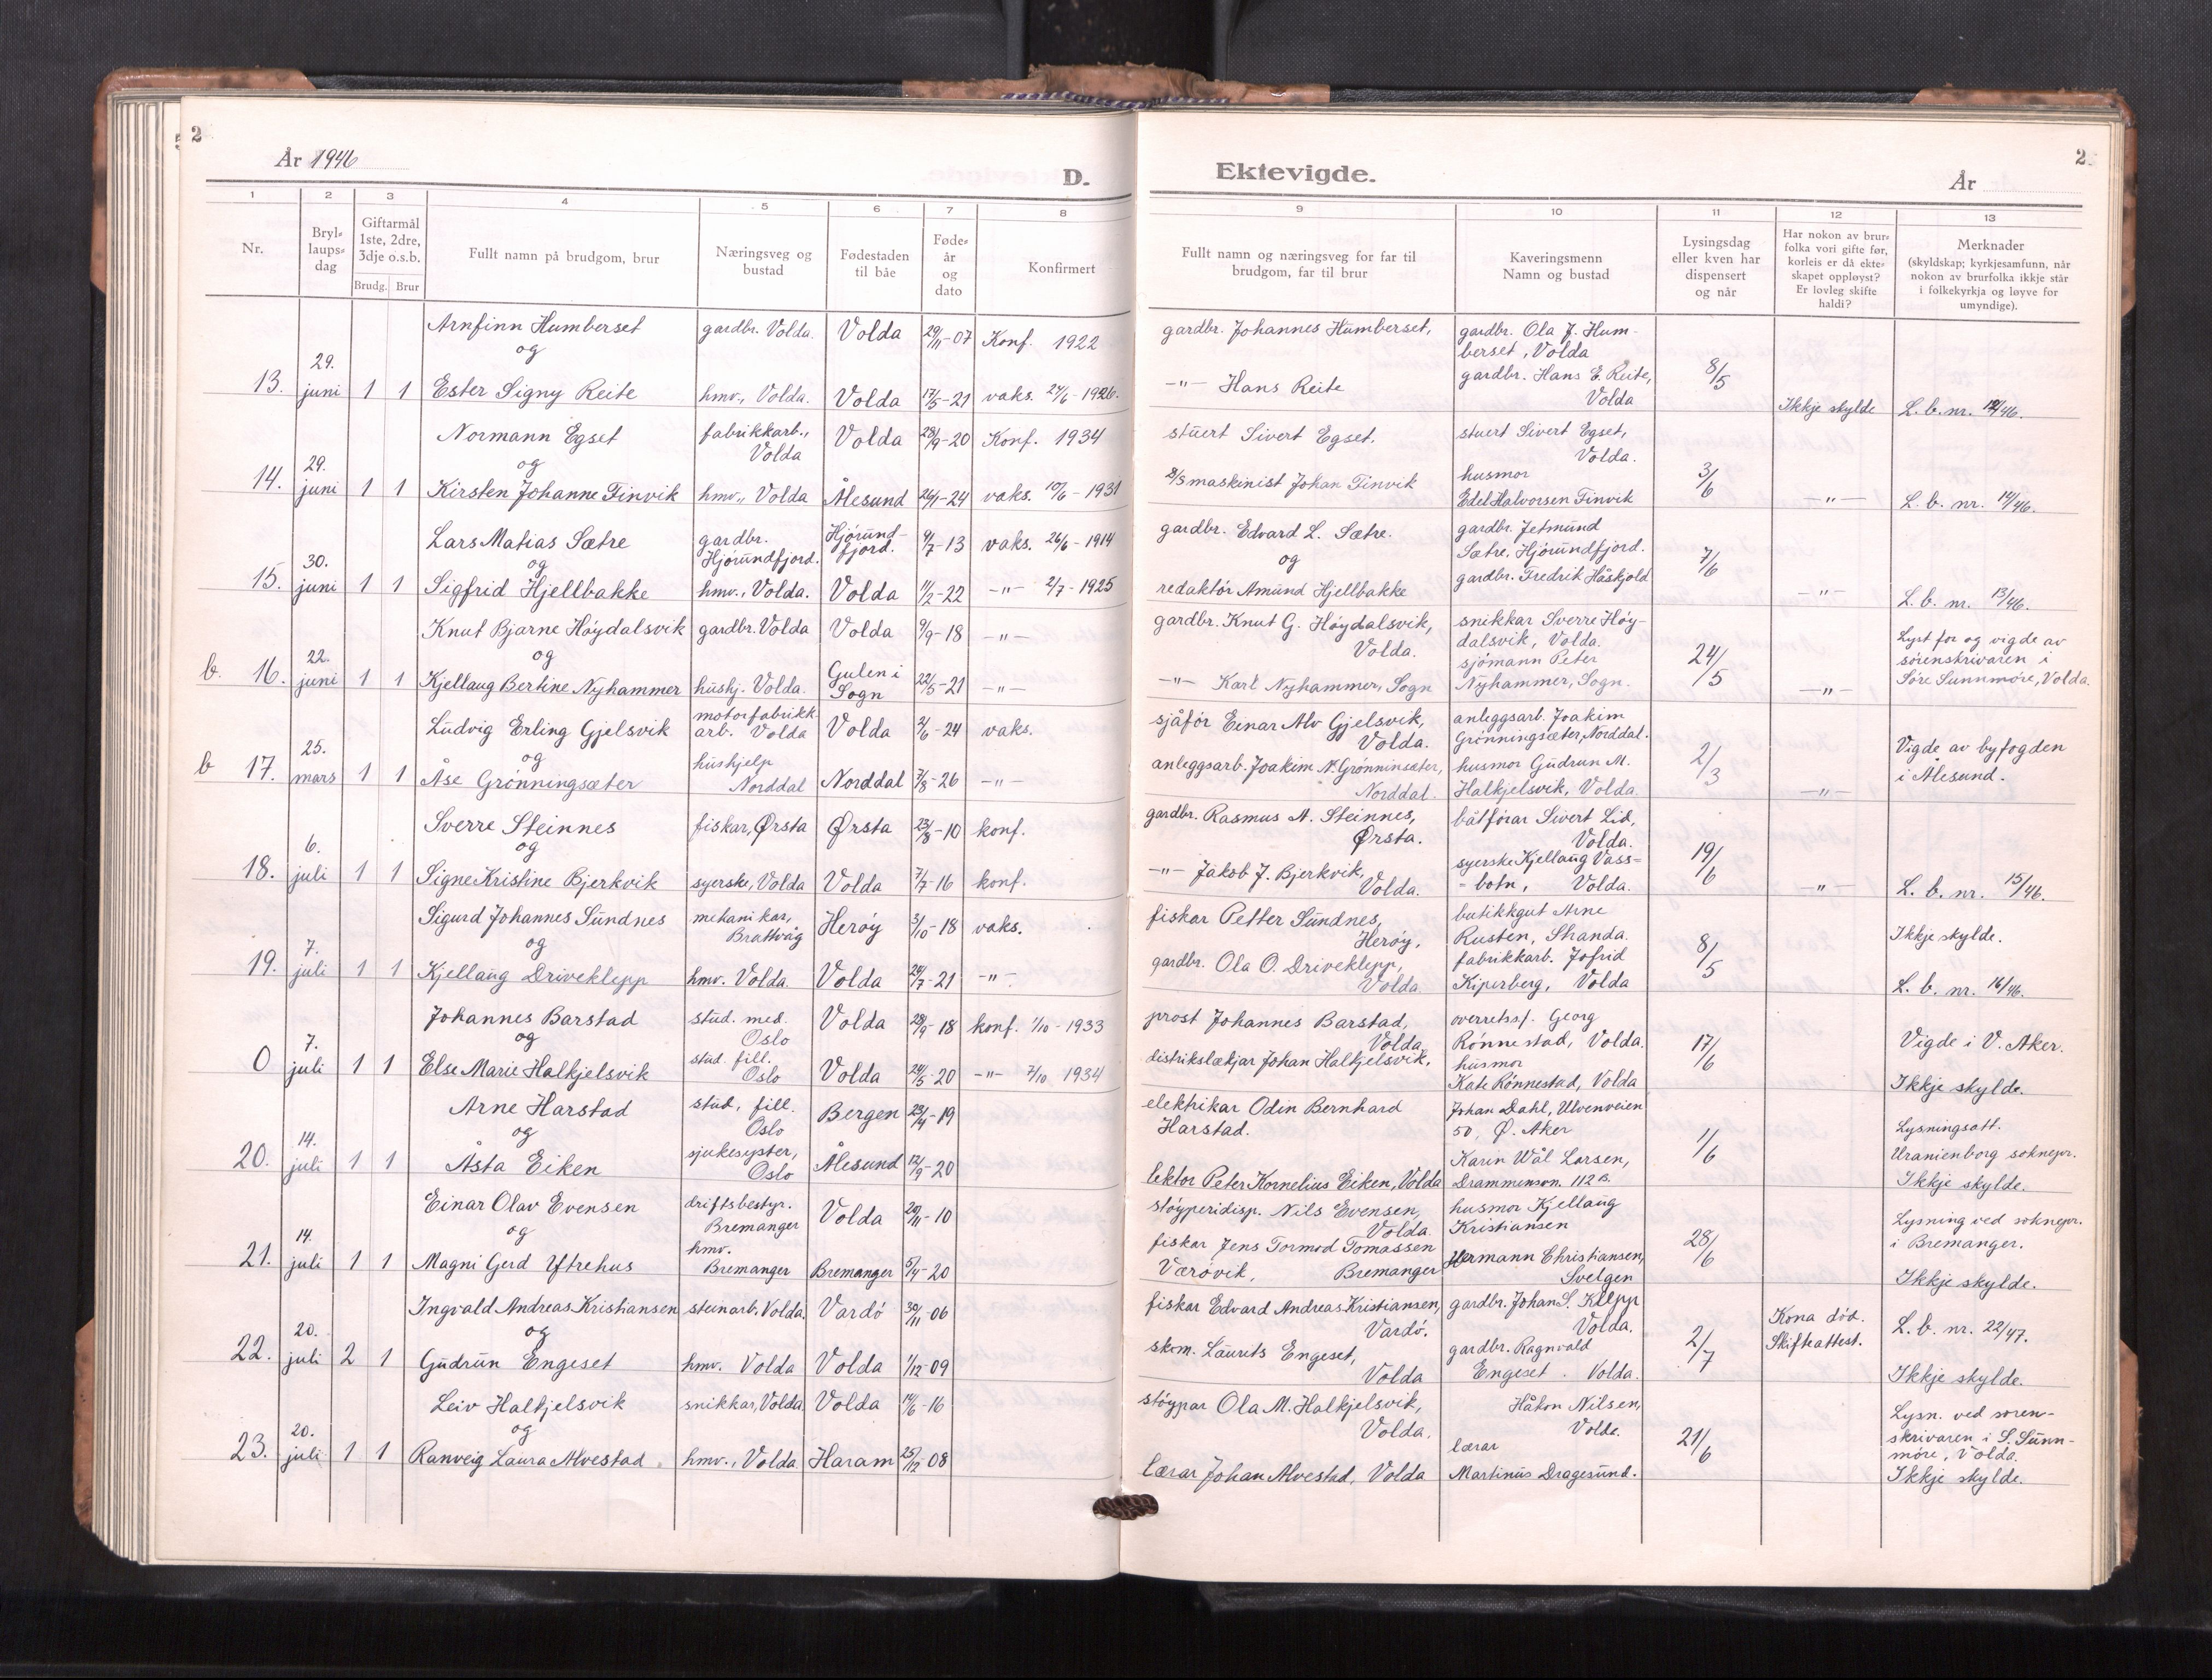 2
År 1946
D.
1 2 3 4 5 6 7 8
Nr.
Bryl-
laups-
dag
Giftarmål
1ste, 2dre,
3dje o.s.b.
Brudg. Brur
Fullt namn på brudgom, brur
Næringsveg og
bustad
Fødestaden
til båe
Føde-
år
og
dato
Konfirmert
Arnfinn Humberset gardbr. Volda. Volda 29/11-07 Konf. 1922
og
13. 29. juni 1 1 Ester Signy Reite hmv., Volda. Volda 17/5-21 vaks. 27/6-1926.
Normann Egset fabrikkarb., Volda Volda 28/9-20 Konf. 1934
og
14. 29. juni 1 1 Kirsten Johanne Finvik hmv., Volda Ålesund 26/1-24 vaks. 10/6-1931
Lars Matias Sætre gardbr. Hjørundfjord. Hjørund-fjord. 9/7-13 vaks. 26/6-1914
og
15. 30. juni 1 1 Sigfrid Hjellbakke hmv., Volda. Volda 11/2-22 -"- 2/7-1925
Knut Bjarne Høydalsvik gardbr. Volda Volda 9/9-18 -"-
og
b. 16. 22. juni 1 1 Kjellaug Bertine Nyhammer hushj. Volda. Gulen i Sogn 22/5-21 -"-
Ludvig Erling Gjelsvik motorfabrikk arb. Volda Volda 2/6-24 vaks.
og
b 17. 25. mars 1 1 Åse Grønningsæter hushjelp Norddal Norddal 7/8-26 -"-
Sverre Steinnes fiskar, Ørsta Ørsta 23/8-10 konf.
og
18. 6. juli 1 1 Signe Kristine Bjerkvik syerske, Volda Volda 7/7-16 konf.
Sigurd Johannes Sundnes mekanikar, Brattvåg Herøy 3/10-18 vaks.
og
19. 7. juli 1 1 Kjellaug Driveklepp hmv. Volda. Volda 24/7-21 -"-
Johannes Barstad stud. med. Oslo Volda 28/9-18 konf. 1/10-1933
og
0 7. juli 1 1 Else Marie Halkjelsvik stud. fill. Oslo Volda 24/5-20 -"- 7/10 1934
Arne Harstad stud. fill. Oslo Bergen 23/4-19
og
20. 14. juli 1 1 Åsta Eiken sjukesyster, Oslo Ålesund 12/9-20
Einar Olav Evensen driftsbestyr. Bremanger Volda 20/11-10
og
21. 14. juli 1 1 Magni Gerd Ytrehus hmv. Bremanger Bremanger 5/4-20
Ingvald Andreas Kristiansen steinarb. Volda. Vardø 30/11-06
og
22. 20. juli 2 1 Gudrun Engeset hmv. Volda Volda 1/12-09
Leiv Halkjelsvik snikkar, Volda Volda 14/6-16
og
23. 20. juli 1 1 Ranveig Laura Alvestad hmv., Volda Haram 25/12 08
Ektevigde.
År
2
9 10 11 12 13
Fullt namn og næringsveg for far til
brudgom, far til brur
Kaveringsmenn
Namn og bustad
Lysingsdag
eller kven har
dispensert
og når
Har nokon av brur-
folka vori gifte før,
korleis er då ekte-
skapet oppløyst?
Er lovleg skifte
haldi?
Merknader
(skyldskap; kyrkjesamfunn, når
nokon av brurfolka ikkje står
i folkekyrkja og løyve for
umyndige).
gardbr. Johannes Humberset, gardbr. Ola J. Hum-
berset, Volda
-"- Hans Reite gardbr. Hans E. Reite, 8/5
Volda Ikkje skylde L. b. nr. 12/46.
stuert Sivert Egset. stuert Sivert Egset,
Volda.
maskinist Johan Finvik husmor 3/6
Edel Halvorsen Finvik -"- L. b. nr. 14/46.
gardbr. Edvard L. Sætre. gardbr. Jetmund
og Sætre. Hjørundfjord. 7/6
redaktør Amund Hjellbakke gardbr. Fredrik Håskjold -"- L. b. nr. 13/46.
gardbr. Knut G. Høydalsvik, snikkar Sverre Høy- Lyst for og vigde av
Volda. dalsvik, Volda. 24/5 sørenskrivaren i
-"- Karl Nyhammer, Sogn sjømann Peter Nyhammer, Sogn. -"- Søre Sunnmøre, Volda.
sjåfør Einar Alv Gjelsvik, anleggsarb. Joakim
Volda. Grønningsæter, Norddal. Vigde av byfogden
anleggsarb. Joakim N. Grønninsæter, husmor Gudrun M. 2/3 i Ålesund.
Norddal. Halkjelsvik, Volda. -"-
gardbr. Rasmus A. Steinnes, båtførar Sivert Lid,
Ørsta. Volda.
-"- Jakob J. Bjerkvik, syerske Kjellaug Vass- 19/6
Volda. =botn, Volda. -"- L. b. nr. 15/46.
fiskar Petter Sundnes, butikkgut Arne
Herøy, Rusten, Stranda. Ikkje skylde.
gardbr. Ola O. Driveklepp, fabrikkarb. Jofrid 8/5
Volda. Kiperberg, Volda L. b. nr. 16/46.
prost Johannes Barstad, overretssf. Georg
Volda Rønnestad, Volda. 17/6 Vigde i V. Aker.
distrikslækjar Johan Halkjelsvik, husmor
Kate Rønnestad, Volda Ikkje skylde.
elektrikar Odin Bernhard Johan Dahl, Ulvenveien
Harstad. 50, Ø. Aker 11/6 Lysningsatt.
Karin Wål Larsen, Uranienborg soknepr.
lektor Peter Kornelius Eiken, Volda Drammensvn. 112 B. Ikkje skylde.
støyperidisp. Nils Evensen, husmor Kjellaug Lysning ved soknepr.
Volda. Kristiansen 28/6 i Bremanger.
fiskar Jens Tormod Tomassen Hermann Christiansen,
Værøvik, Bremanger Svelgen Ikkje skylde.
fiskar Edvard Andreas Kristiansen, gardbr. Johan S. Klepp Kona død.
Vardø. Volda. 2/7 Skifteattest. L. b. nr. 22/47.
skom. Laurits Engeset, gardbr. Ragnvald
Volda Engeset. Volda. Ikkje skylde.
støypar Ola M. Halkjelsvik, Håkon Nilsen, Lysn. ved soren-
Volda. Volda. 21/6 skrivaren i S. Sunn-
lærar møre, Volda.
lærar Johan Alvestad, Volda Martinus Dragesund. Ikkje skylde.